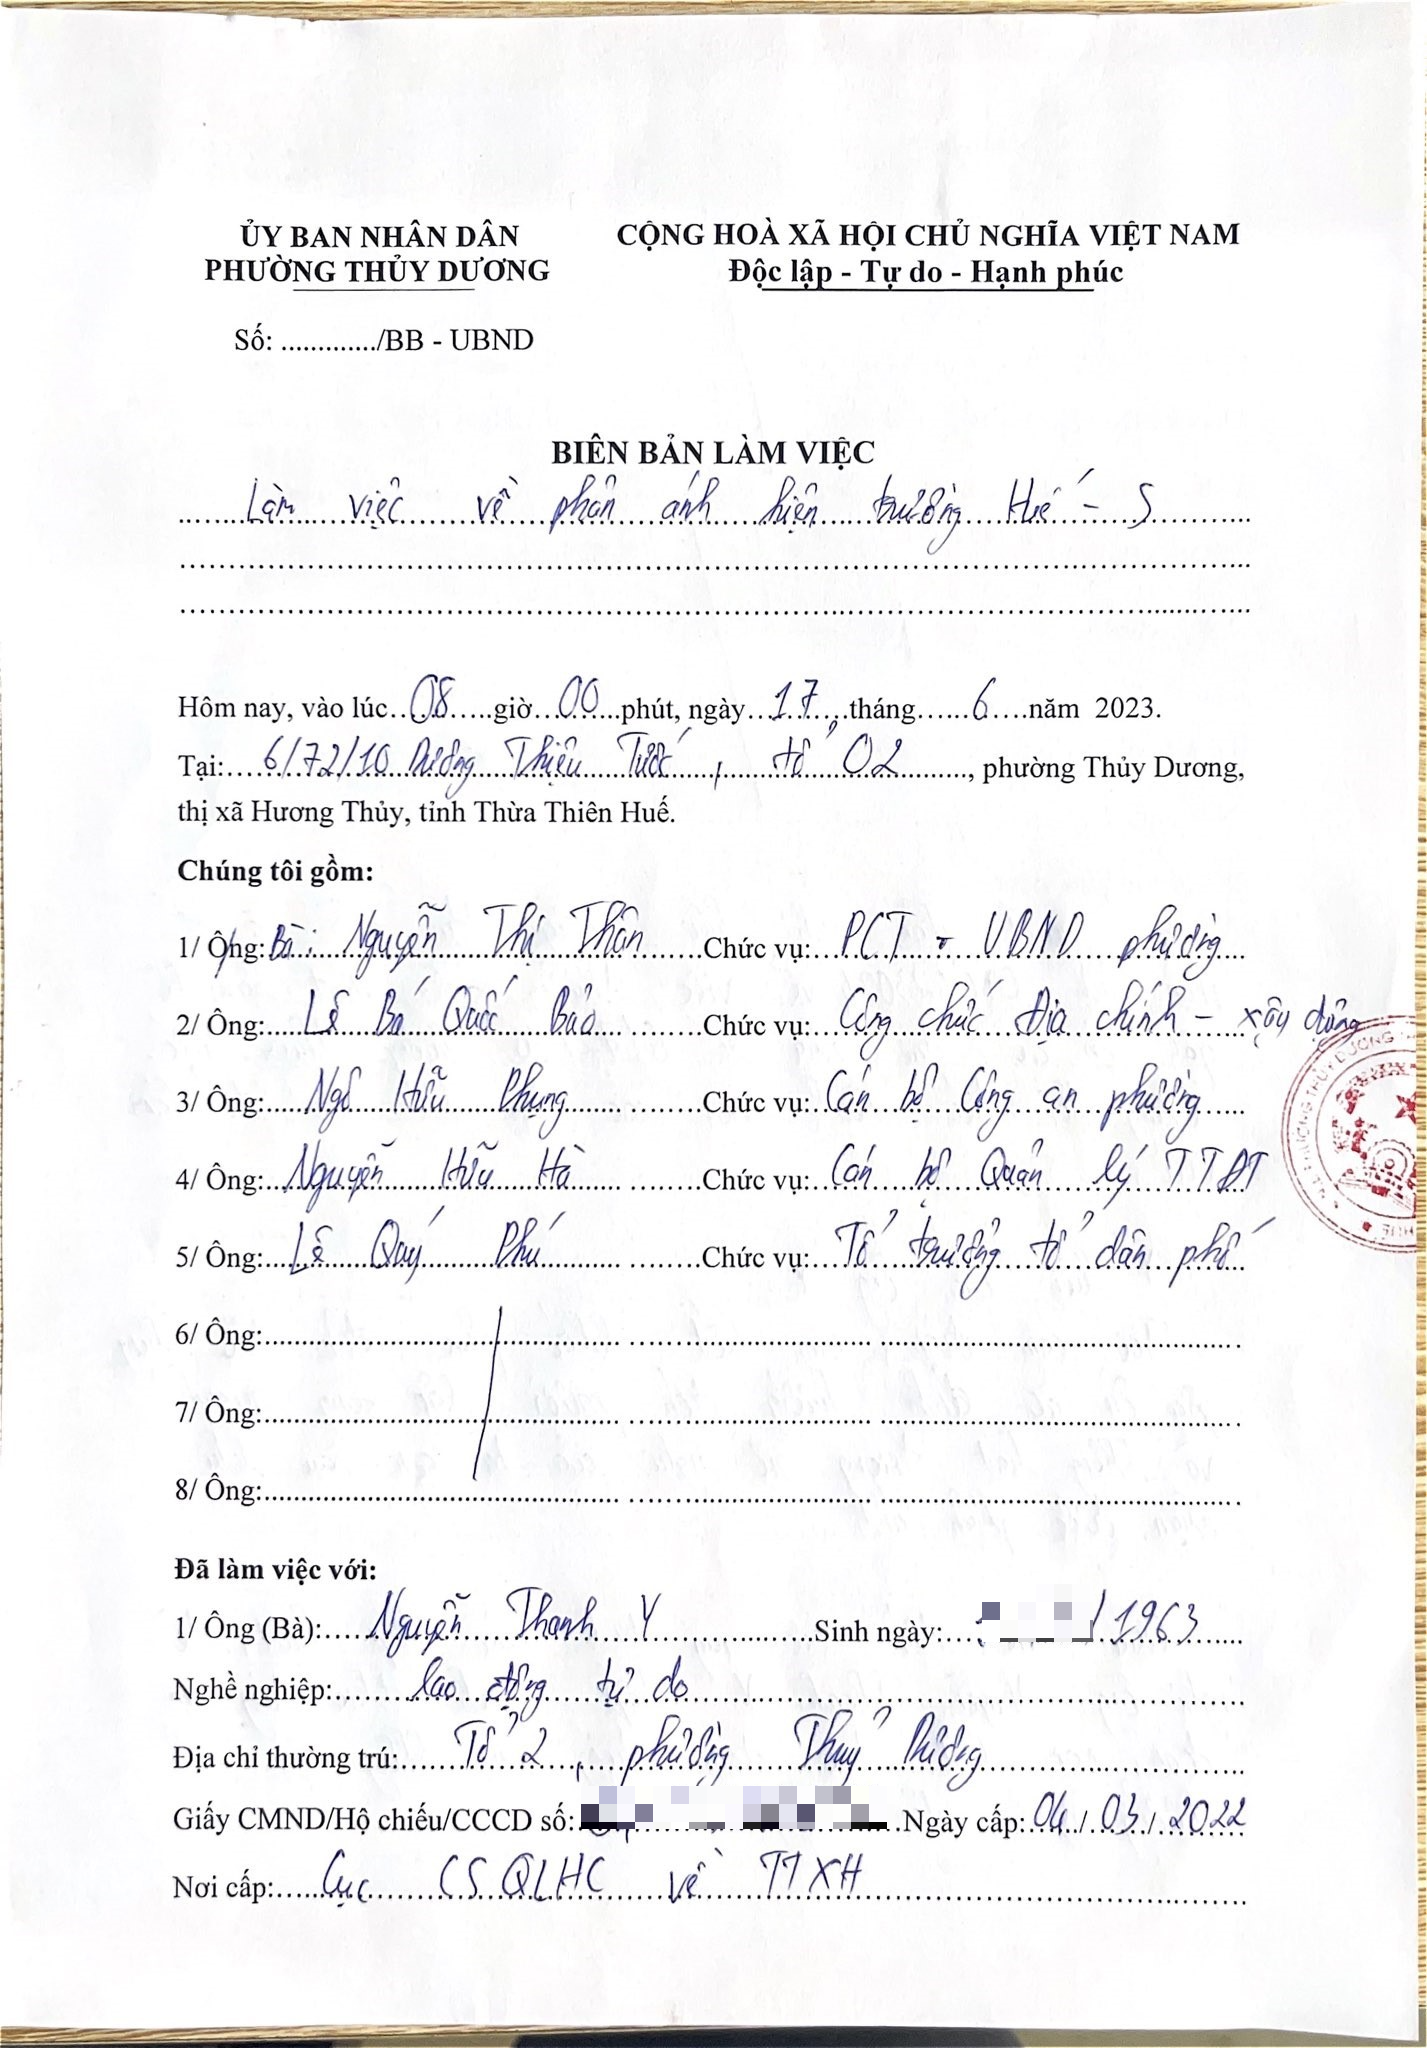 ỦY BAN NHÂN DÂN
PHƯỜNG THỦY DƯƠNG
CỘNG HOÀ XÃ HỘI CHỦ NGHĨA VIỆT NAM
Độc lập - Tự do - Hạnh phúc
Số: ............./BB - UBND
BIÊN BẢN LÀM VIỆC
Làm việc về phản ánh hiện trường Huế - S
Hôm nay, vào lúc 08 giờ 00 phút, ngày 17 tháng 6 năm 2023.
Tại: 6/72/10 Dương Thiệu Tước, tổ 02, phường Thủy Dương,
thị xã Hương Thủy, tỉnh Thừa Thiên Huế.
Chúng tôi gồm:
1/ Ông: Bà: Nguyễn Thị Thân Chức vụ: PCT - UBND phường
2/ Ông: Lê Bá Quốc Bảo Chức vụ: Công chức Địa chính - xây dựng
3/ Ông: Ngô Hữu Phụng Chức vụ: Cán bộ Công an phường
4/ Ông: Nguyễn Hữu Hà Chức vụ: Cán bộ Quản lý TTĐT
5/ Ông: Lê Quý Phú Chức vụ: Tổ trưởng tổ dân phố
6/ Ông:
7/ Ông:
8/ Ông:
Đã làm việc với:
1/ Ông (Bà): Nguyễn Thanh Y Sinh ngày: /1963
Nghề nghiệp: lao động tự do
Địa chỉ thường trú: Tổ 2, phường Thuỷ Dương
Giấy CMND/Hộ chiếu/CCCD số: Ngày cấp: 04/03/2022
Nơi cấp: Cục CSQLHC về TTXH